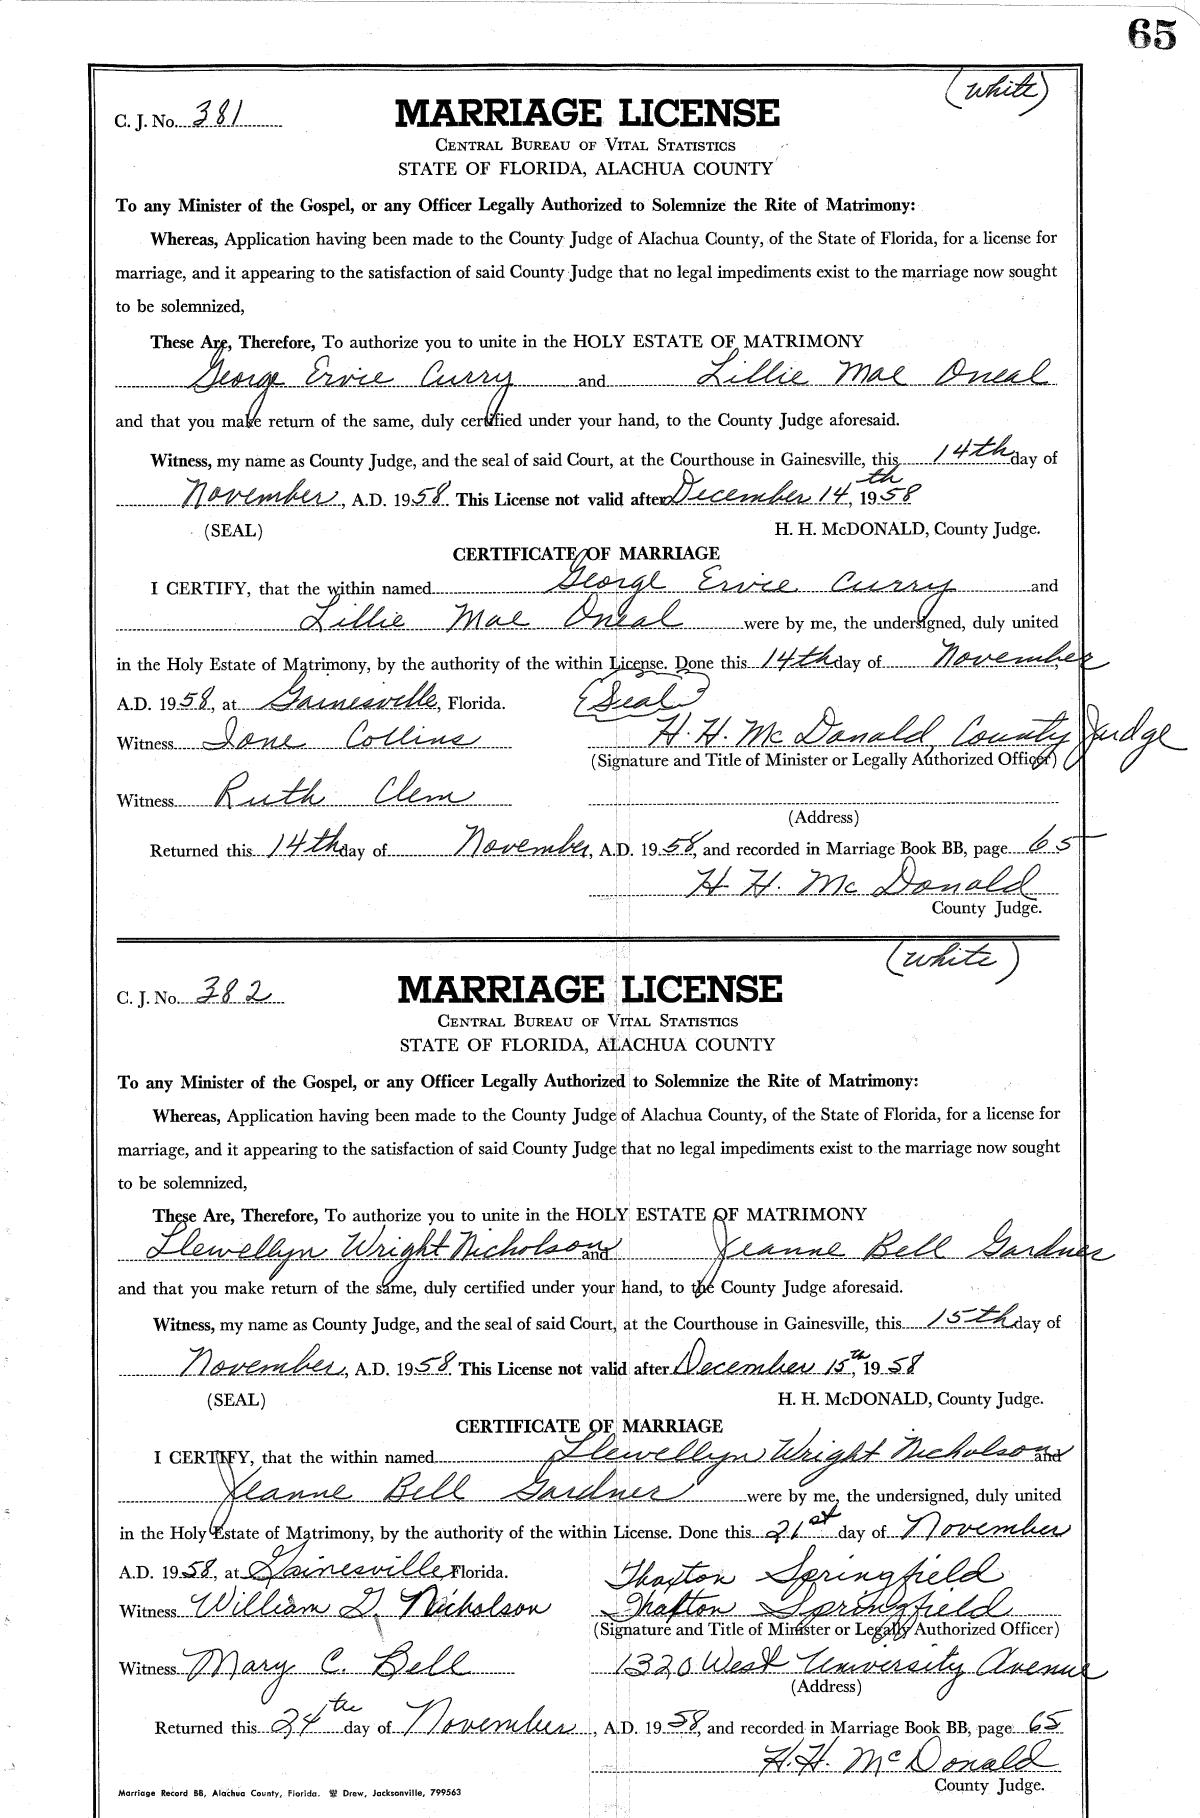 65
(white)
C. J. No. 381
MARRIAGE LICENSE
CENTRAL BUREAU OF VITAL STATISTICS
STATE OF FLORIDA, ALACHUA COUNTY
To any Minister of the Gospel, or any Officer Legally Authorized to Solemnize the Rite of Matrimony:
Whereas, Application having been made to the County Judge of Alachua County, of the State of Florida, for a license for
marriage, and it appearing to the satisfaction of said County Judge that no legal impediments exist to the marriage now sought
to be solemnized,
These Are, Therefore, To authorize you to unite in the HOLY ESTATE OF MATRIMONY
George Ervie Curry and Lillie Mae Oneal
and that you make return of the same, duly certified under your hand, to the County Judge aforesaid.
Witness, my name as County Judge, and the seal of said Court, at the Courthouse in Gainesville, this 14th day of
November, A.D. 1958. This License not valid after December 14th, 1958
(SEAL) H. H. McDONALD, County Judge.
CERTIFICATE OF MARRIAGE
I CERTIFY, that the within named George Ervie Curry and
Lillie Mae Oneal were by me, the undersigned, duly united
in the Holy Estate of Matrimony, by the authority of the within License. Done this 14th day of November
A.D. 1958, at Gainesville, Florida. (Seal)
Witness Ione Collins H. H. McDonald, County Judge
(Signature and Title of Minister or Legally Authorized Officer)
Witness Ruth Clem
(Address)
Returned this 14th day of November, A.D. 1958, and recorded in Marriage Book BB, page 65
H. H. McDonald
County Judge.
(white)
C. J. No. 382
MARRIAGE LICENSE
CENTRAL BUREAU OF VITAL STATISTICS
STATE OF FLORIDA, ALACHUA COUNTY
To any Minister of the Gospel, or any Officer Legally Authorized to Solemnize the Rite of Matrimony:
Whereas, Application having been made to the County Judge of Alachua County, of the State of Florida, for a license for
marriage, and it appearing to the satisfaction of said County Judge that no legal impediments exist to the marriage now sought
to be solemnized,
These Are, Therefore, To authorize you to unite in the HOLY ESTATE OF MATRIMONY
Llewellyn Wright Nicholson and Jeanne Bell Gardner
and that you make return of the same, duly certified under your hand, to the County Judge aforesaid.
Witness, my name as County Judge, and the seal of said Court, at the Courthouse in Gainesville, this 15th day of
November, A.D. 1958. This License not valid after December 15th, 1958
(SEAL) H. H. McDONALD, County Judge.
CERTIFICATE OF MARRIAGE
I CERTIFY, that the within named Llewellyn Wright Nicholson and
Jeanne Bell Gardner were by me, the undersigned, duly united
in the Holy Estate of Matrimony, by the authority of the within License. Done this 21st day of November
A.D. 1958, at Gainesville, Florida. Thaxton Springfield
Witness William G. Nicholson Thaxton Springfield
(Signature and Title of Minister or Legally Authorized Officer)
Witness Mary C. Bell 1320 West University Avenue
(Address)
Returned this 24th day of November, A.D. 1958, and recorded in Marriage Book BB, page 65
H. H. McDonald
County Judge.
Marriage Record BB, Alachua County, Florida. Drew, Jacksonville, 799563